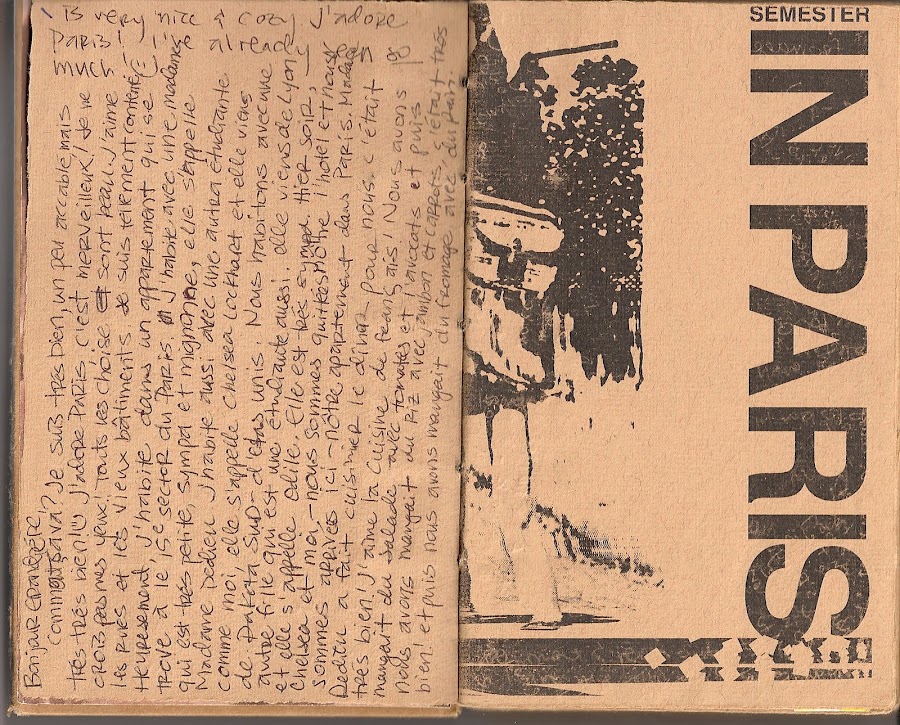 is very nice & cozy. J'adore
Paris! already
much!
Bonjour
Comment ça va? Je suis tres bien, un peu accable mais
tres trés bien! J'adore Paris, c'est merveilleux! Je ne
crois pas mes yeux! Touts les choise sont beau. J'aime
les rues et les vieux bâtiments. Je suis tellement contente
Heuresement, j'habite dans un appartement qui se
trove à le 15e sector du Paris. J'habite avec une madame
qui est trés petite, sympa et mignonne, elle s'appelle
Madame Dedieu. J'habite aussi avec une autra étudiante
comme moi, elle s'appelle Chelsea Lockhart et elle viens
de Dakota Sud - d'etas unis. Nous habitons avec une
autre fille qui est une étudiante aussi. elle viens de Lyon,
et elle s'appelle Odile. Elle est trés sympa. Hier soir,
Chelsea et moi, - nous sommes quittes notre l'hotel et nous
sommes arrivés ici - notre apartement dans Paris. Madame
Dedieu a fait cuisinier le dînar pour nous. c'était
tres bien! J'aime la cuisine de français! Nous avons
mangait du salade avec tomates et l'avocats et puis
nous avons mangait du riz avec jambon et carrots. c'était trés
bien! et puis nous avons mangait du fromage avec du pain.
SEMESTER
IN PARIS